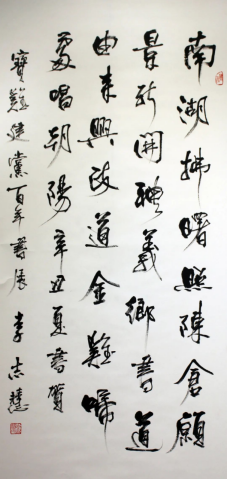 南湖拂曙照陳倉願
景新開禮義鄉書道
由来興政道金雞啼
處唱朝陽辛丑夏書賀
寶雞建黨百年書展李志慧